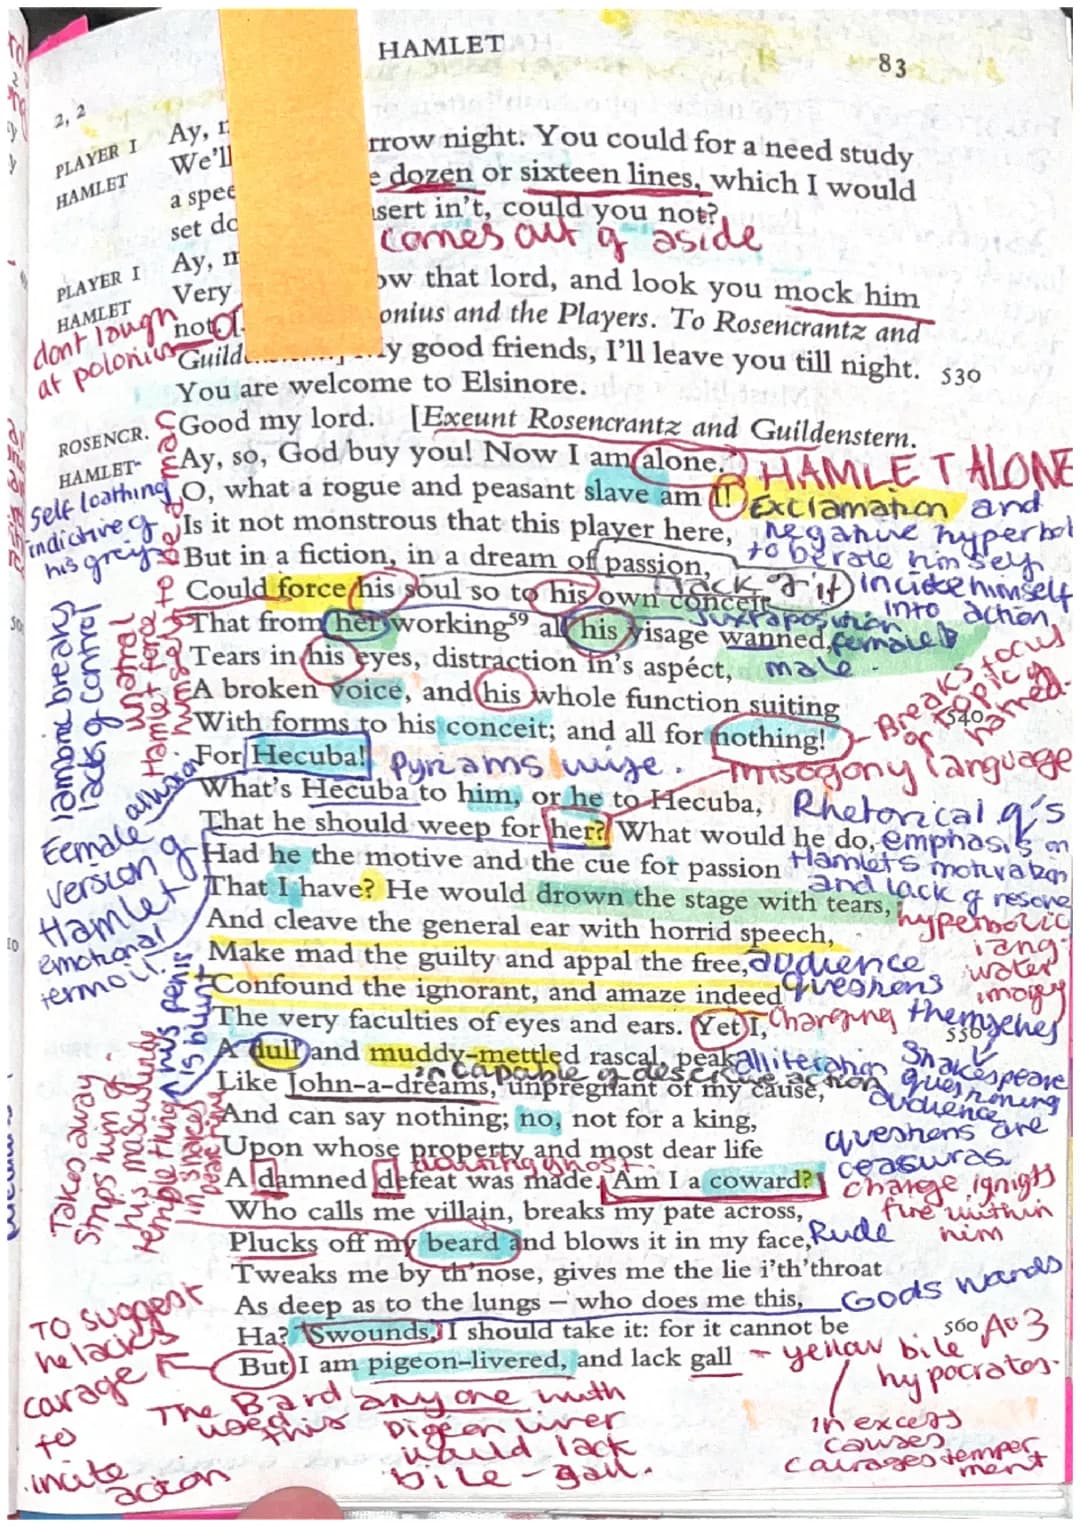 HAMLET
83
2, 2
PLAYER I Ay, rrow night. You could for a need study
HAMLET We'll e dozen or sixteen lines, which I would
a spee sert in't, could you not?
set do
comes out of aside
PLAYER I Ay, m
HAMLET Very ow that lord, and look you mock him
not onius and the Players. To Rosencrantz and
dont laugh
at polonius
Guild y good friends, I'll leave you till night. 530
You are welcome to Elsinore.
ROSENCR. Good my lord. [Exeunt Rosencrantz and Guildenstern.
HAMLET Ay, so, God buy you! Now I am alone.
HAMLET ALONE
O, what a rogue and peasant slave am I!
Exclamation and
Self loathing
Is it not monstrous that this player here,
negative hyperbol
indictive of
his
to berate himself
But in a fiction, in a dream of passion,
(lack of it)
incite himself
Could force his soul so to his own conceit
into action
juxtaposition
That from her working59 all his visage wanned,
female
Tears in his eyes, distraction in's aspéct,
male
A broken voice, and his whole function suiting
540
Breaks focus
or topic
named.
With forms to his conceit; and all for nothing!
For Hecuba!
Pyriams wife.
misogony language
iambic breaks
lacks of control
unatral
Hamlet force
himself to be
What's Hecuba to him, or he to Hecuba,
Rhetorical q's
That he should weep for her? What would he do,
emphasis on
Had he the motive and the cue for passion
Hamlets motivation
and lack of resove
That I have? He would drown the stage with tears,
hyperbolic
lang-
water
imagey
Female allusion
version of
Hamlet
emotional
termoil.
And cleave the general ear with horrid speech,
Make mad the guilty and appal the free,
audience
Confound the ignorant, and amaze indeed
questions
themselves
The very faculties of eyes and ears. Yet I,
Changing
550
A dull and muddy-mettled rascal, peak
alliteration
Shakespeare
questioning
audience
his penis
is blunt
Like John-a-dreams, unpregnant of my cause,
incapable of action
And can say nothing; no, not for a king,
Upon whose property and most dear life
questions are
ceasuras
A damned defeat was made. Am I a coward?
change, ignights
fire within
him
Takes away
strips him of
his masculinity
Who calls me villain, breaks my pate across,
Plucks off my beard and blows it in my face,
Rude
Tweaks me by th'nose, gives me the lie i'th'throat
As deep as to the lungs – who does me this,
Gods wands
Ha? 'Swounds, I should take it: for it cannot be
560
AO3
But I am pigeon-livered, and lack gall
yellow bile
hypocrates.
To suggest
he lacks
carage
to
incite
action
The Bard
uses this
anyone with
Pigeon liver
would lack
bile - gall.
in excess
causes
courages temper
ment